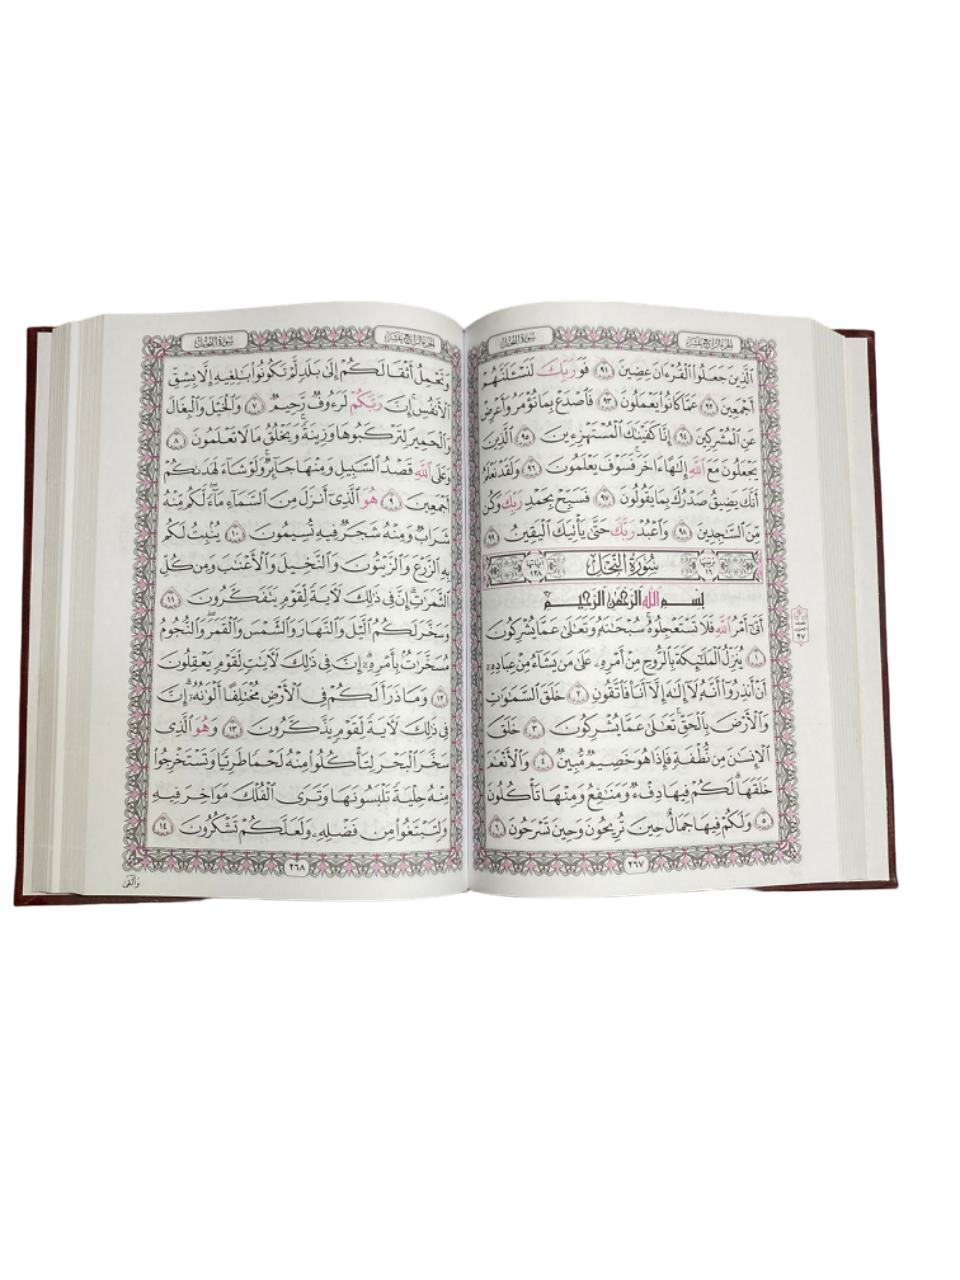 سورة النحل
الجزء الرابع عشر
الَّذِينَ جَعَلُوا الْقُرْءَانَ عِضِينَ ٩١ فَوَرَبِّكَ لَنَسْـَٔلَنَّهُمْ
أَجْمَعِينَ ٩٢ عَمَّا كَانُوا يَعْمَلُونَ ٩٣ فَاصْدَعْ بِمَا تُؤْمَرُ وَأَعْرِضْ
عَنِ الْمُشْرِكِينَ ٩٤ إِنَّا كَفَيْنَٰكَ الْمُسْتَهْزِءِينَ ٩٥ الَّذِينَ
يَجْعَلُونَ مَعَ اللَّهِ إِلَٰهًا ءَاخَرَ فَسَوْفَ يَعْلَمُونَ ٩٦ وَلَقَدْ نَعْلَمُ
أَنَّكَ يَضِيقُ صَدْرُكَ بِمَا يَقُولُونَ ٩٧ فَسَبِّحْ بِحَمْدِ رَبِّكَ وَكُن
مِّنَ السَّٰجِدِينَ ٩٨ وَاعْبُدْ رَبَّكَ حَتَّىٰ يَأْتِيَكَ الْيَقِينُ ٩٩
سُورَةُ النَّحْلِ
بِسْمِ اللَّهِ الرَّحْمَٰنِ الرَّحِيمِ
أَتَىٰٓ أَمْرُ اللَّهِ فَلَا تَسْتَعْجِلُوهُ سُبْحَٰنَهُ وَتَعَٰلَىٰ عَمَّا يُشْرِكُونَ
١ يُنَزِّلُ الْمَلَٰٓئِكَةَ بِالرُّوحِ مِنْ أَمْرِهِ عَلَىٰ مَن يَشَآءُ مِنْ عِبَادِهِ
أَنْ أَنذِرُوٓا أَنَّهُ لَآ إِلَٰهَ إِلَّآ أَنَا فَاتَّقُونِ ٢ خَلَقَ السَّمَٰوَٰتِ
وَالْأَرْضَ بِالْحَقِّ تَعَٰلَىٰ عَمَّا يُشْرِكُونَ ٣ خَلَقَ
الْإِنسَٰنَ مِن نُّطْفَةٍ فَإِذَا هُوَ خَصِيمٌ مُّبِينٌ ٤ وَالْأَنْعَٰمَ
خَلَقَهَا لَكُمْ فِيهَا دِفْءٌ وَمَنَٰفِعُ وَمِنْهَا تَأْكُلُونَ
٥ وَلَكُمْ فِيهَا جَمَالٌ حِينَ تُرِيحُونَ وَحِينَ تَسْرَحُونَ ٦
٢٦٧
الجزء الرابع عشر
سورة النحل
وَتَحْمِلُ أَثْقَالَكُمْ إِلَىٰ بَلَدٍ لَّمْ تَكُونُوا بَٰلِغِيهِ إِلَّا بِشِقِّ
الْأَنفُسِ إِنَّ رَبَّكُمْ لَرَءُوفٌ رَّحِيمٌ ٧ وَالْخَيْلَ وَالْبِغَالَ
وَالْحَمِيرَ لِتَرْكَبُوهَا وَزِينَةً وَيَخْلُقُ مَا لَا تَعْلَمُونَ ٨
وَعَلَى اللَّهِ قَصْدُ السَّبِيلِ وَمِنْهَا جَآئِرٌ وَلَوْ شَآءَ لَهَدَىٰكُمْ
أَجْمَعِينَ ٩ هُوَ الَّذِىٓ أَنزَلَ مِنَ السَّمَآءِ مَآءً لَّكُم مِّنْهُ
شَرَابٌ وَمِنْهُ شَجَرٌ فِيهِ تُسِيمُونَ ١٠ يُنۢبِتُ لَكُم
بِهِ الزَّرْعَ وَالزَّيْتُونَ وَالنَّخِيلَ وَالْأَعْنَٰبَ وَمِن كُلِّ
الثَّمَرَٰتِ إِنَّ فِى ذَٰلِكَ لَءَايَةً لِّقَوْمٍ يَتَفَكَّرُونَ ١١
وَسَخَّرَ لَكُمُ الَّيْلَ وَالنَّهَارَ وَالشَّمْسَ وَالْقَمَرَ وَالنُّجُومُ
مُسَخَّرَٰتٌ بِأَمْرِهِ إِنَّ فِى ذَٰلِكَ لَءَايَٰتٍ لِّقَوْمٍ يَعْقِلُونَ
١٢ وَمَا ذَرَأَ لَكُمْ فِى الْأَرْضِ مُخْتَلِفًا أَلْوَٰنُهُ إِنَّ
فِى ذَٰلِكَ لَءَايَةً لِّقَوْمٍ يَذَّكَّرُونَ ١٣ وَهُوَ الَّذِى
سَخَّرَ الْبَحْرَ لِتَأْكُلُوا مِنْهُ لَحْمًا طَرِيًّا وَتَسْتَخْرِجُوا
مِنْهُ حِلْيَةً تَلْبَسُونَهَا وَتَرَى الْفُلْكَ مَوَاخِرَ فِيهِ
وَلِتَبْتَغُوا مِن فَضْلِهِ وَلَعَلَّكُمْ تَشْكُرُونَ ١٤
٢٦٨
وَأَلْقَىٰ